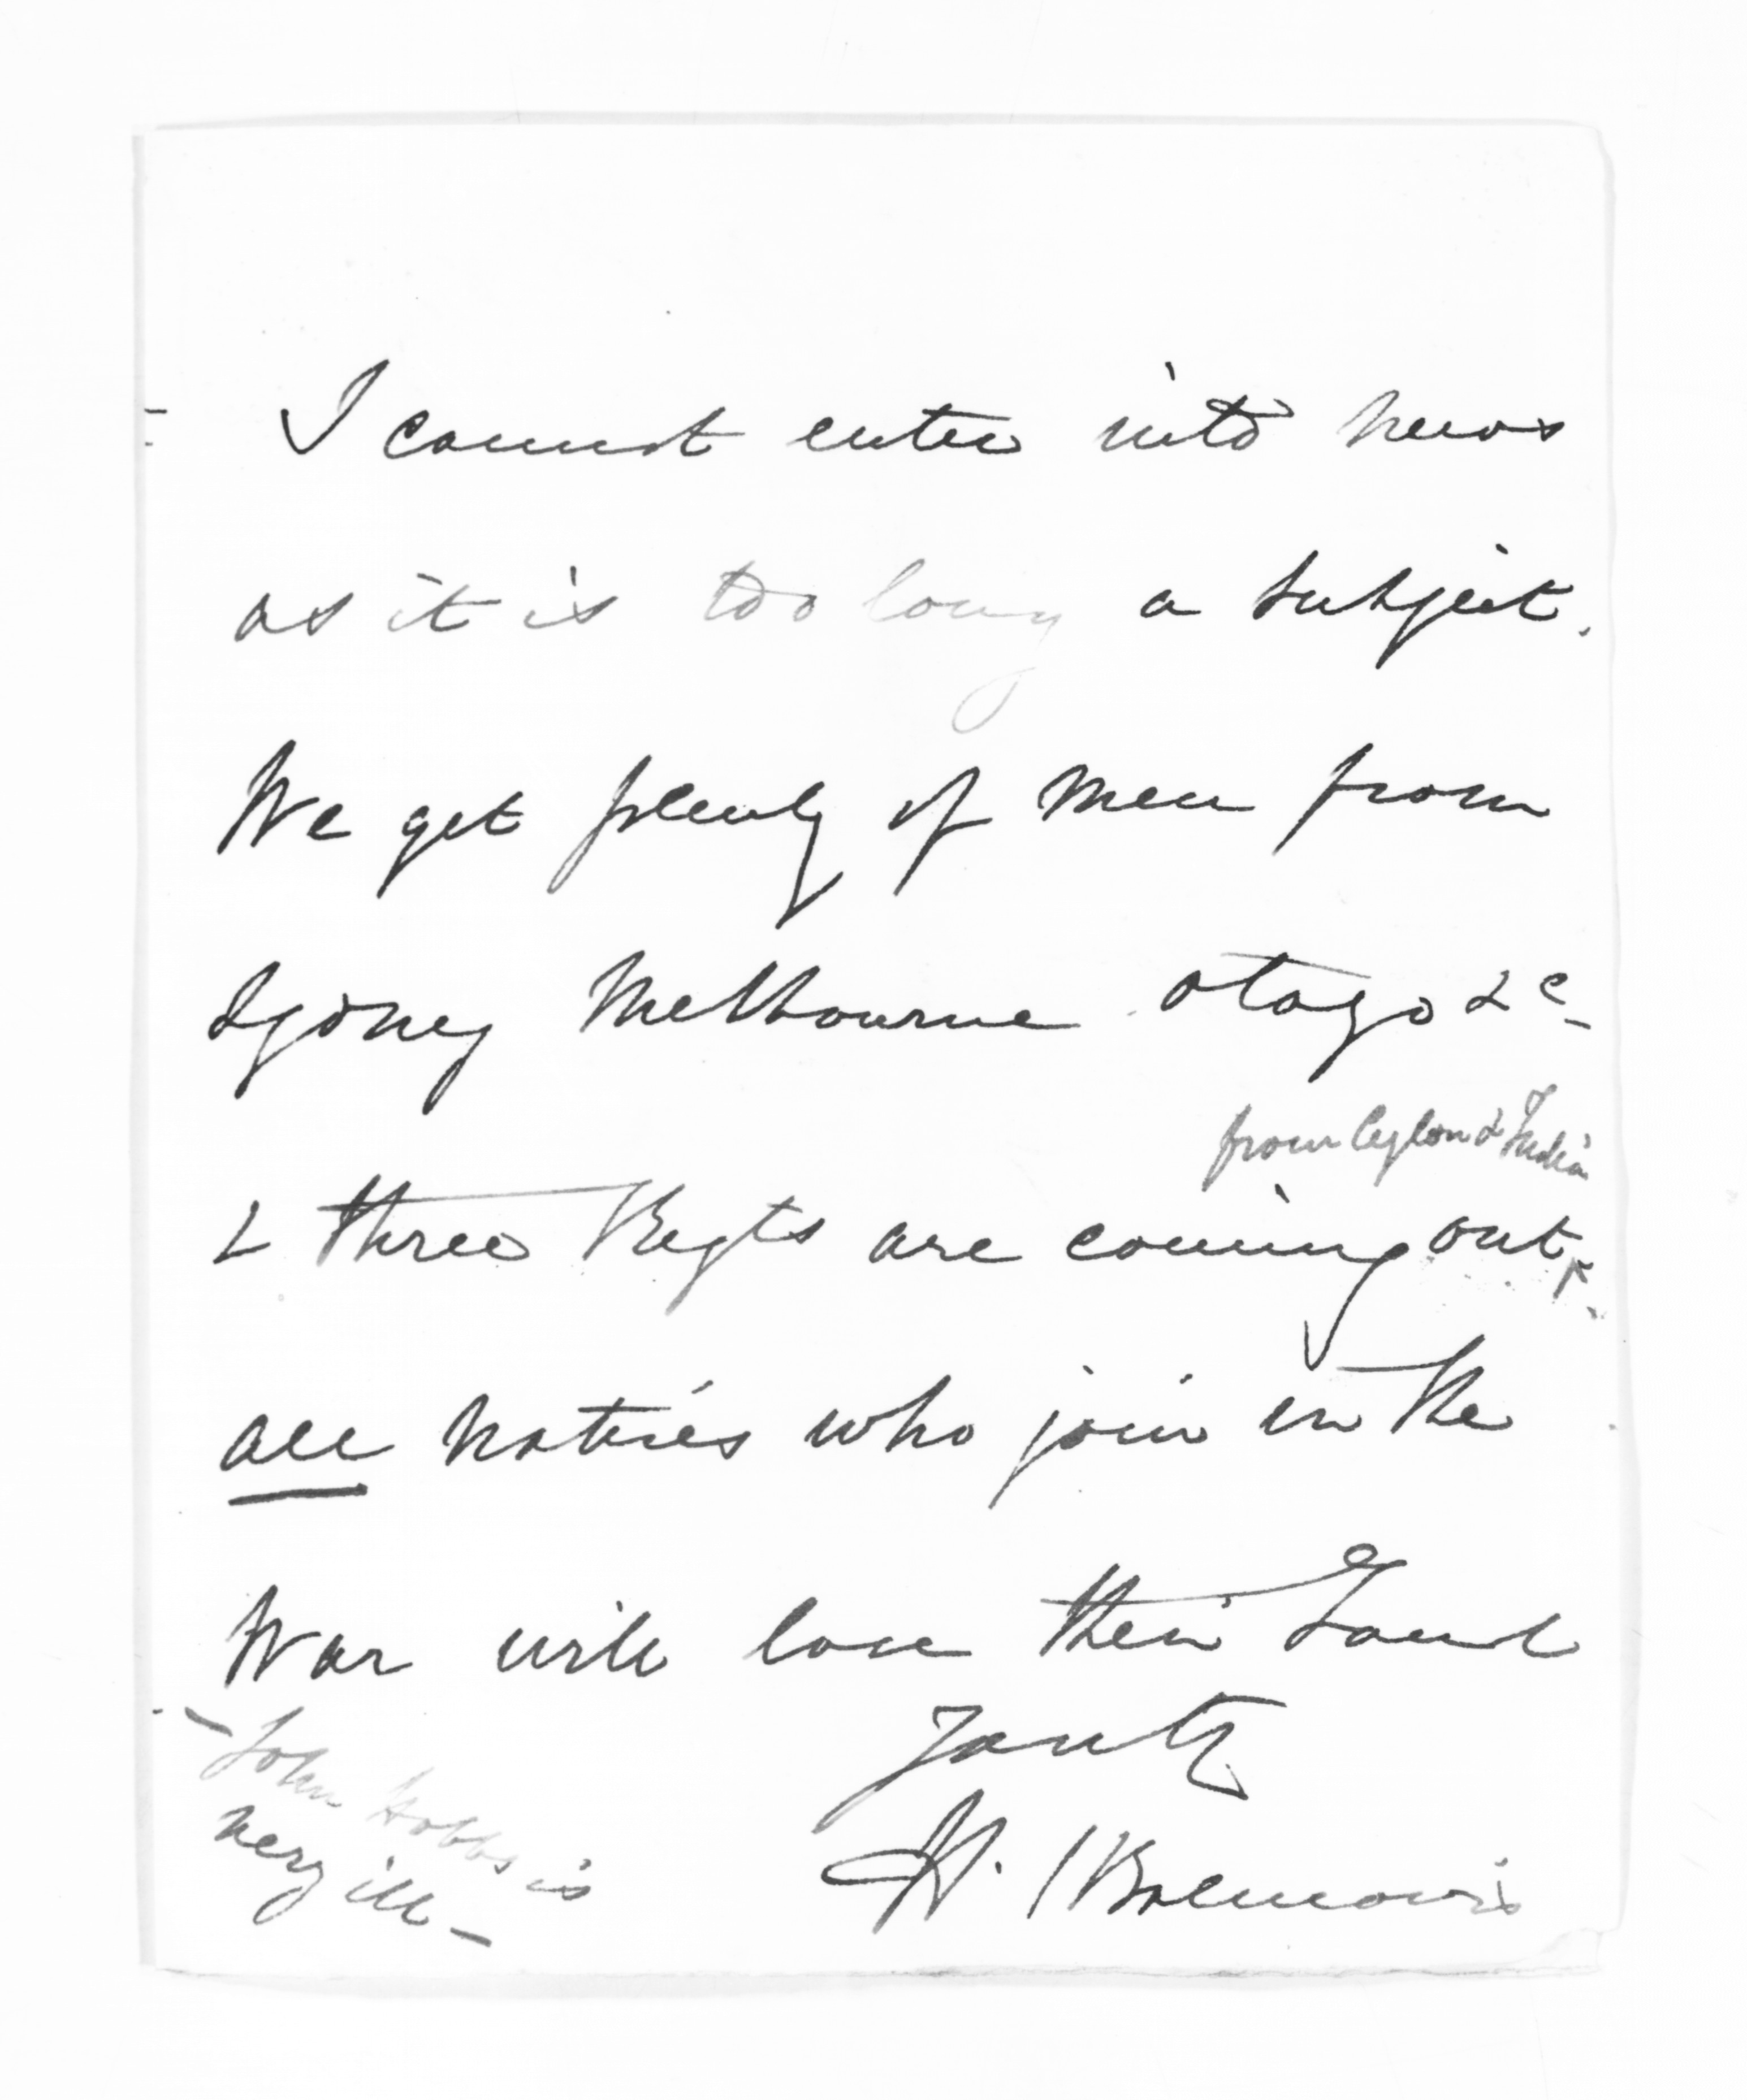 I cannot enter into news
as it is too long a subject.
We get plenty of men from
Sydney Melbourne Otago &c
from Ceylon & India
& three Regts are coming out
all natives who join in the
War will lose their Land
H.
- John Hobbs is
very ill -